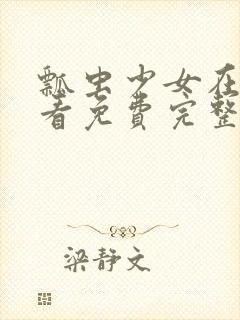 瓢虫少女在
看免费完整
梁静文